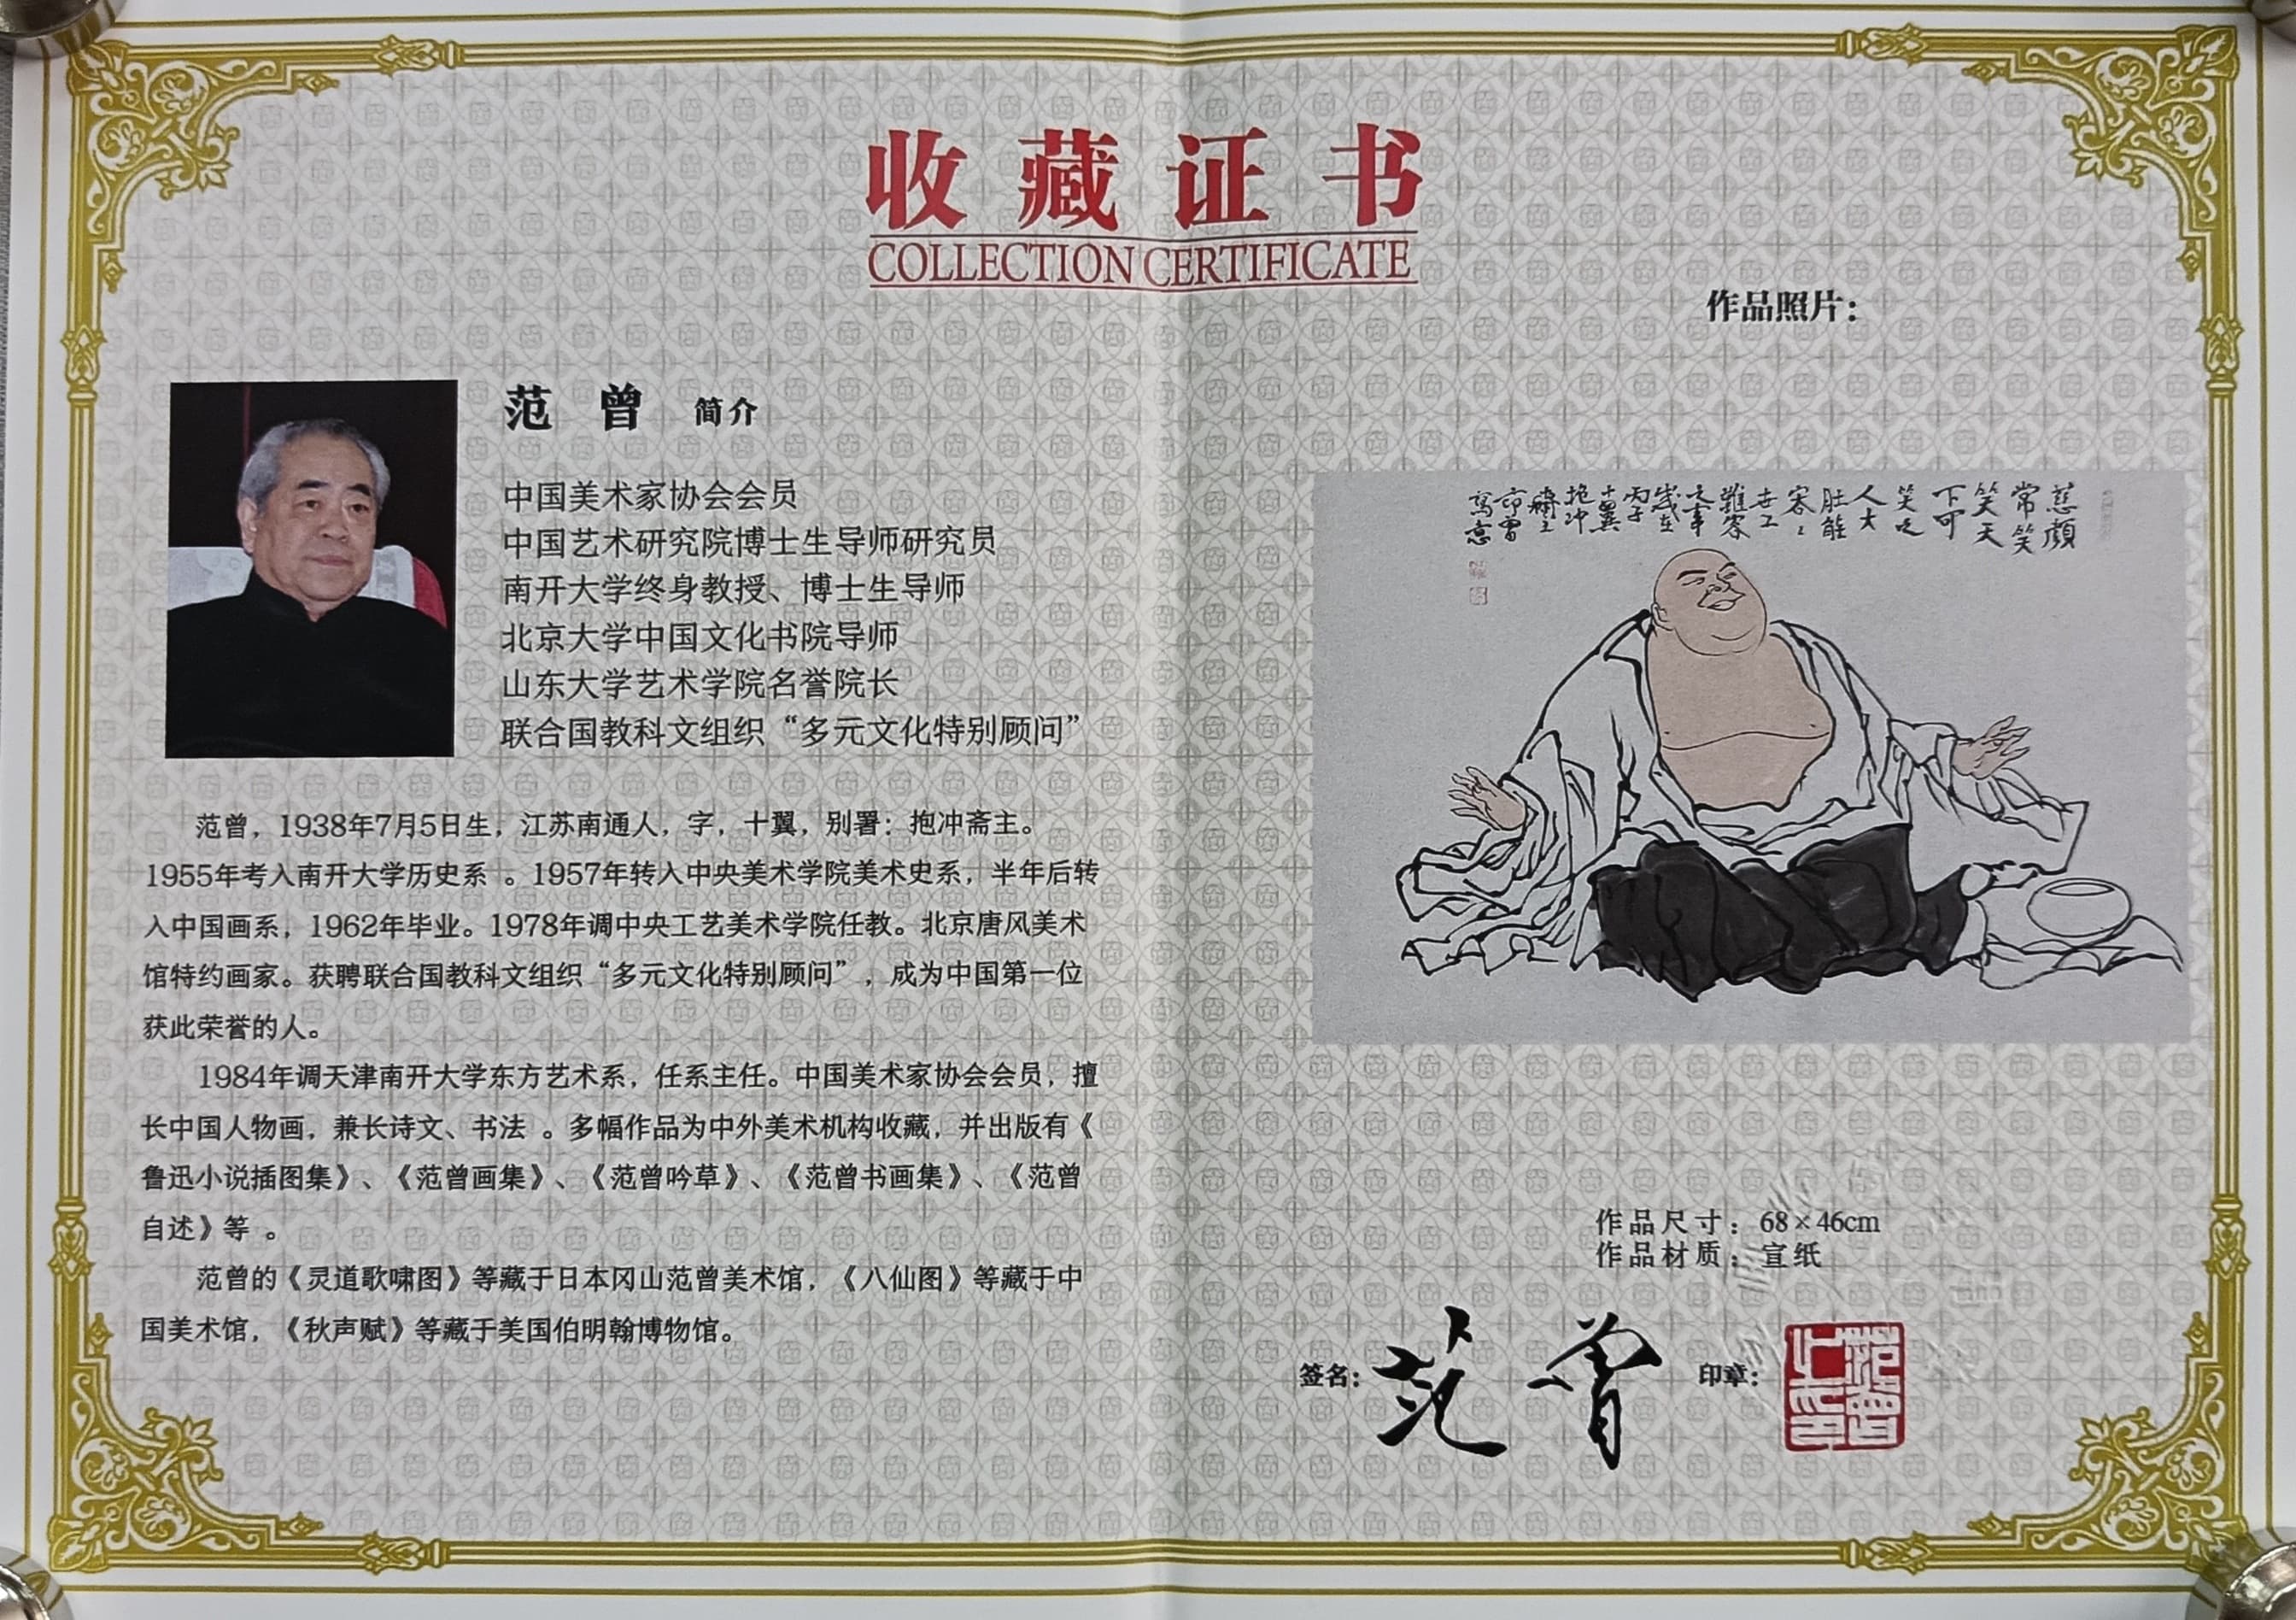 收藏证书
COLLECTION CERTIFICATE
范曾 简介
中国美术家协会会员
中国艺术研究院博士生导师研究员
南开大学终身教授、博士生导师
北京大学中国文化书院导师
山东大学艺术学院名誉院长
联合国教科文组织“多元文化特别顾问”
范曾，1938年7月5日生，江苏南通人，字，十翼，别署：抱冲斋主。
1955年考入南开大学历史系 。1957年转入中央美术学院美术史系，半年后转
入中国画系，1962年毕业。1978年调中央工艺美术学院任教。北京唐风美术
馆特约画家。获聘联合国教科文组织“多元文化特别顾问”，成为中国第一位
获此荣誉的人。
1984年调天津南开大学东方艺术系，任系主任。中国美术家协会会员，擅
长中国人物画，兼长诗文、书法 。多幅作品为中外美术机构收藏，并出版有《
鲁迅小说插图集》、《范曾画集》、《范曾吟草》、《范曾书画集》、《范曾
自述》等 。
范曾的《灵道歌啸图》等藏于日本冈山范曾美术馆，《八仙图》等藏于中
国美术馆，《秋声赋》等藏于美国伯明翰博物馆。
作品照片：
慈颜
常笑
笑天
下可
笑之
人大
肚能
容
世上
難容
之事
歲在
丙子
十翼
抱冲
齋主
范曾
寫意
作品尺寸：68×46cm
作品材质：宣纸
签名：范曾
印章：